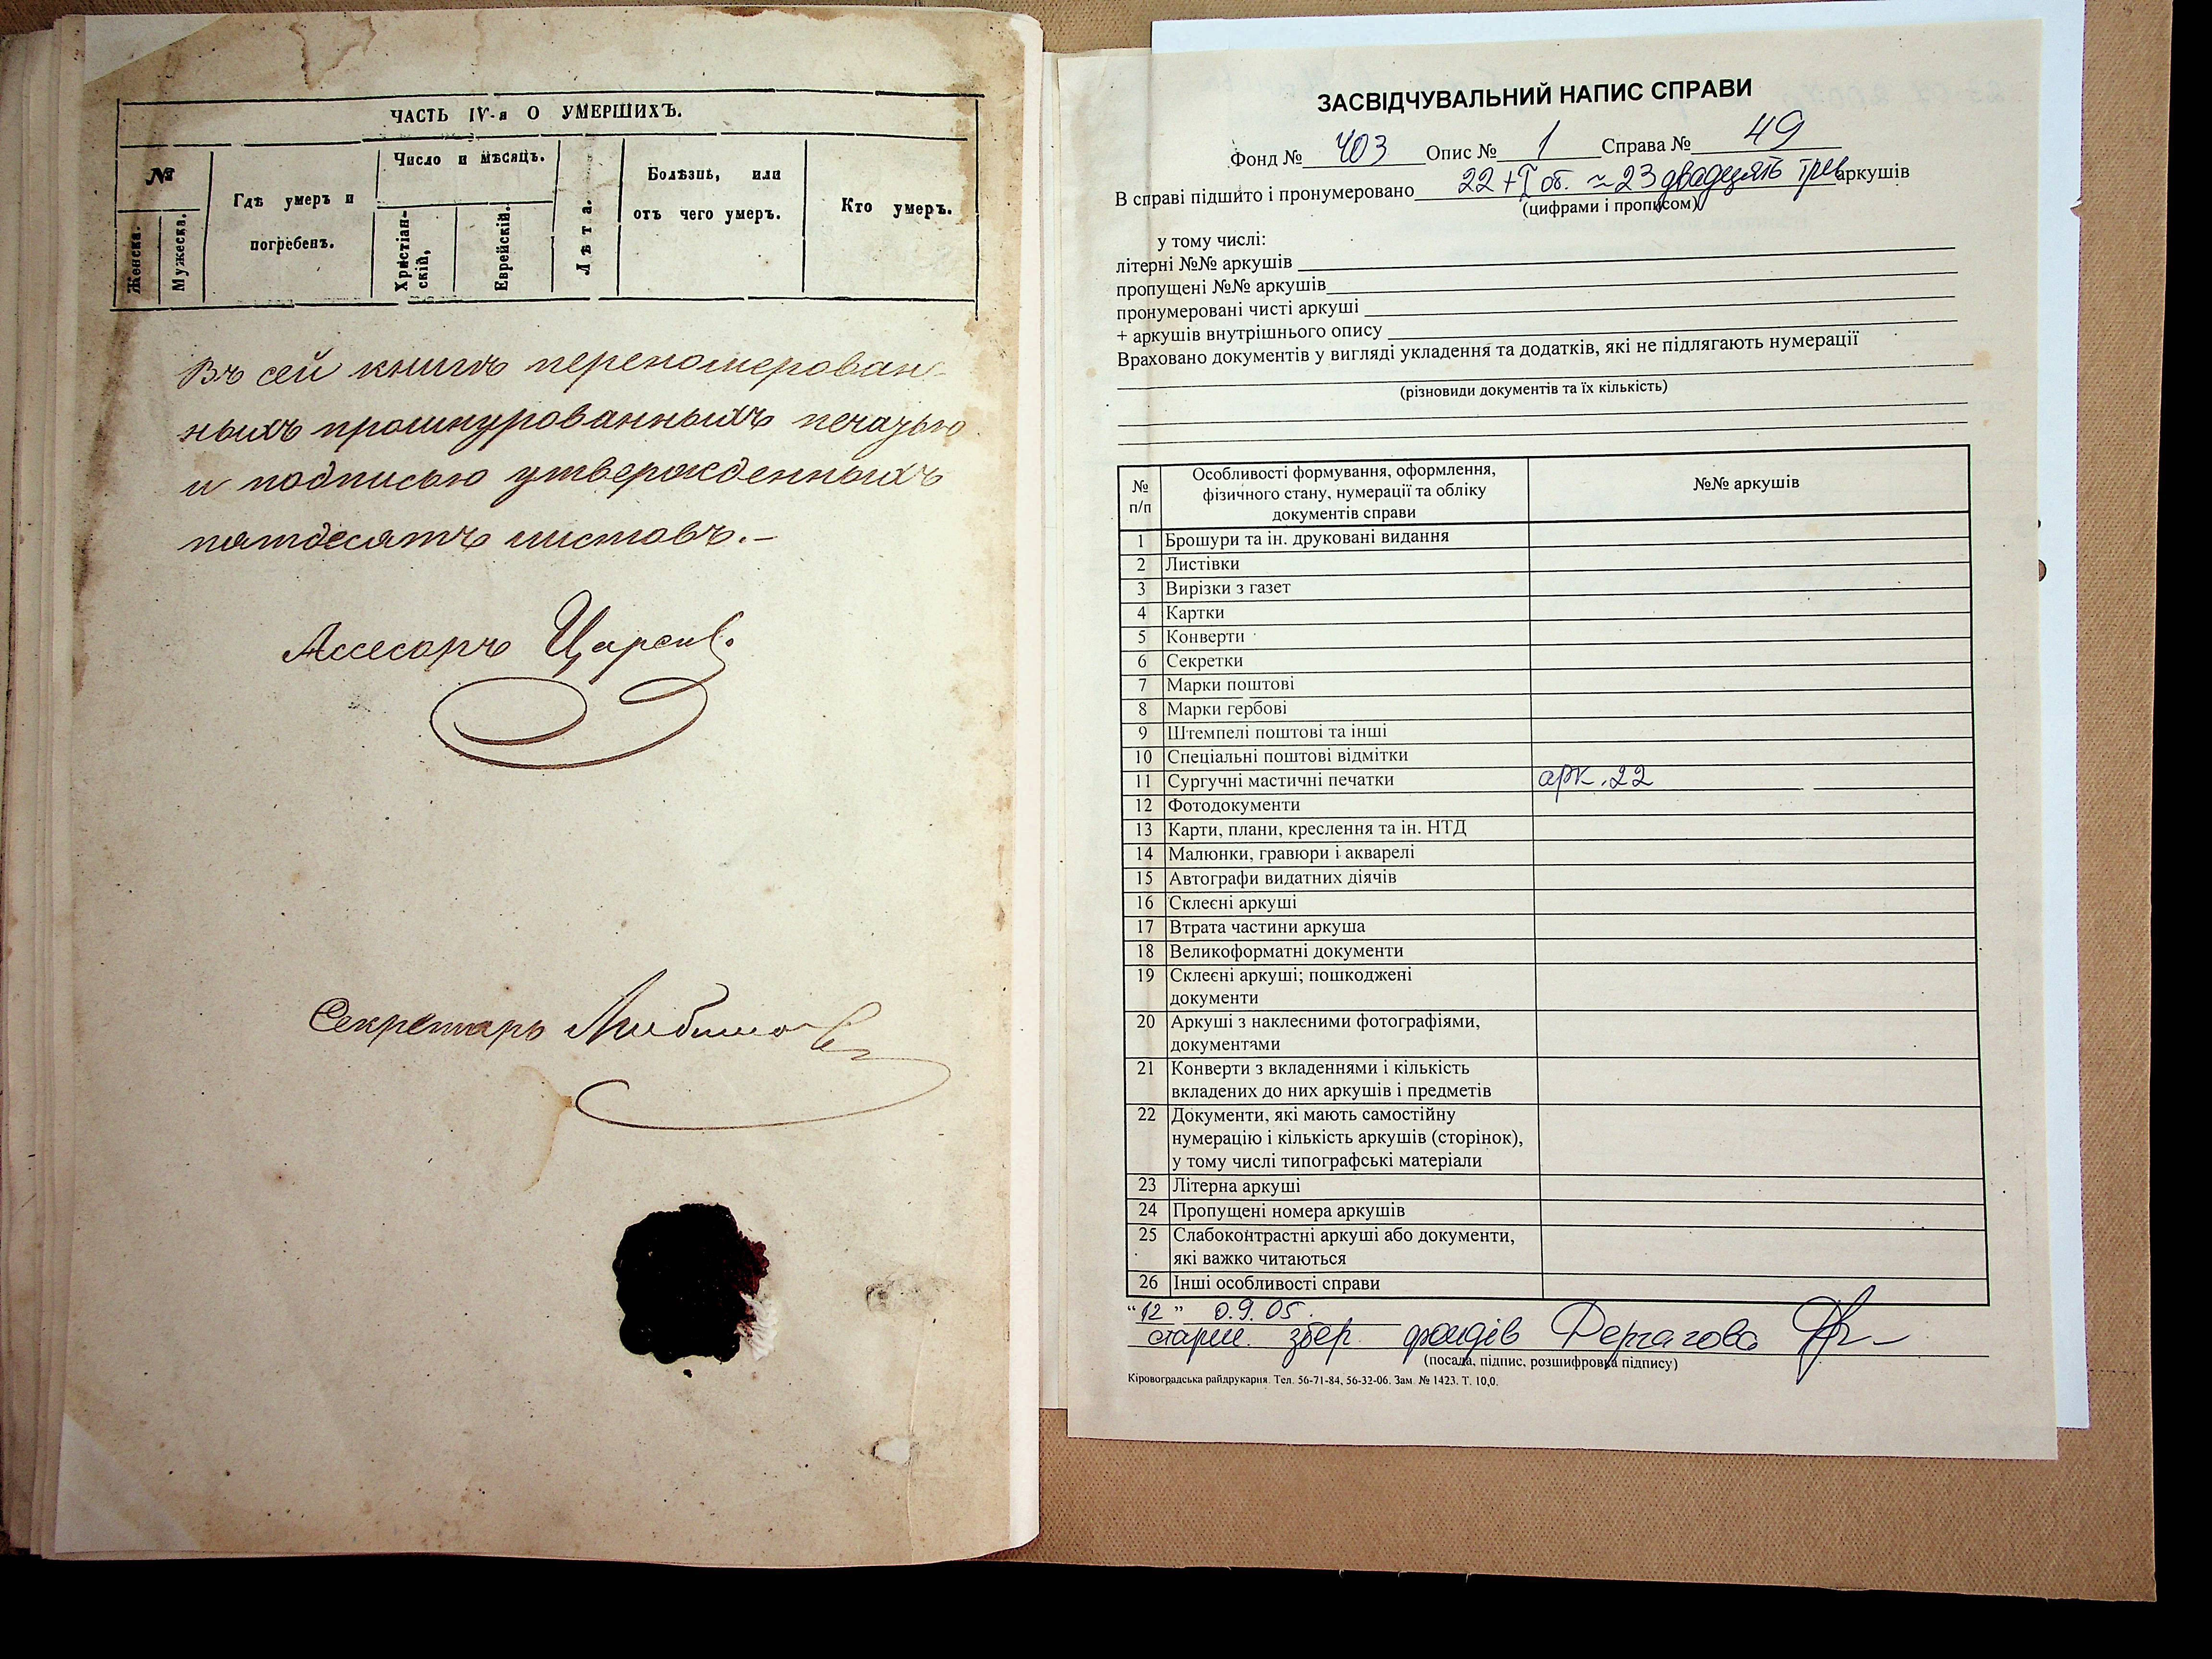 ЧАСТЬ IV-я О УМЕРШИХЪ.
№
Женска.
Мужеска.
Гдѣ умеръ и
погребенъ.
Число и мѣсяцъ.
Христіан-
скій,
Еврейскій.
Лѣта.
Болѣзнь, или
отъ чего умеръ.
Кто умеръ.
Въ сей книгѣ переномерован-
ныхъ прошнурованныхъ печатью
и подписью утвержденныхъ
пятдесятъ листовъ.–
Ассесоръ
Секретарь Любимов
ЗАСВІДЧУВАЛЬНИЙ НАПИС СПРАВИ
Фонд № 403 Опис № 1 Справа № 49
В справі підшито і пронумеровано 22 + I об. ≈ 23 двадцять три аркушів
(цифрами і прописом)
у тому числі:
літерні №№ аркушів
пропущені №№ аркушів
пронумеровані чисті аркуші
+ аркушів внутрішнього опису
Враховано документів у вигляді укладення та додатків, які не підлягають нумерації
(різновиди документів та їх кількість)
№ п/п
Особливості формування, оформлення,
фізичного стану, нумерації та обліку
документів справи
№№ аркушів
1 Брошури та ін. друковані видання
2 Листівки
3 Вирізки з газет
4 Картки
5 Конверти
6 Секретки
7 Марки поштові
8 Марки гербові
9 Штемпелі поштові та інші
10 Спеціальні поштові відмітки
11 Сургучні мастичні печатки арк. 22
12 Фотодокументи
13 Карти, плани, креслення та ін. НТД
14 Малюнки, гравюри і акварелі
15 Автографи видатних діячів
16 Склеєні аркуші
17 Втрата частини аркуша
18 Великоформатні документи
19 Склеєні аркуші; пошкоджені
документи
20 Аркуші з наклеєними фотографіями,
документами
21 Конверти з вкладеннями і кількість
вкладених до них аркушів і предметів
22 Документи, які мають самостійну
нумерацію і кількість аркушів (сторінок),
у тому числі типографські матеріали
23 Літерна аркуші
24 Пропущені номера аркушів
25 Слабоконтрастні аркуші або документи,
які важко читаються
26 Інші особливості справи
“12” 0.9.05.
старш. збер. фондів
(посада, підпис, розшифровка підпису)
Кіровоградська райдрукарня. Тел. 56-71-84, 56-32-06. Зам. № 1423. Т. 10,0.